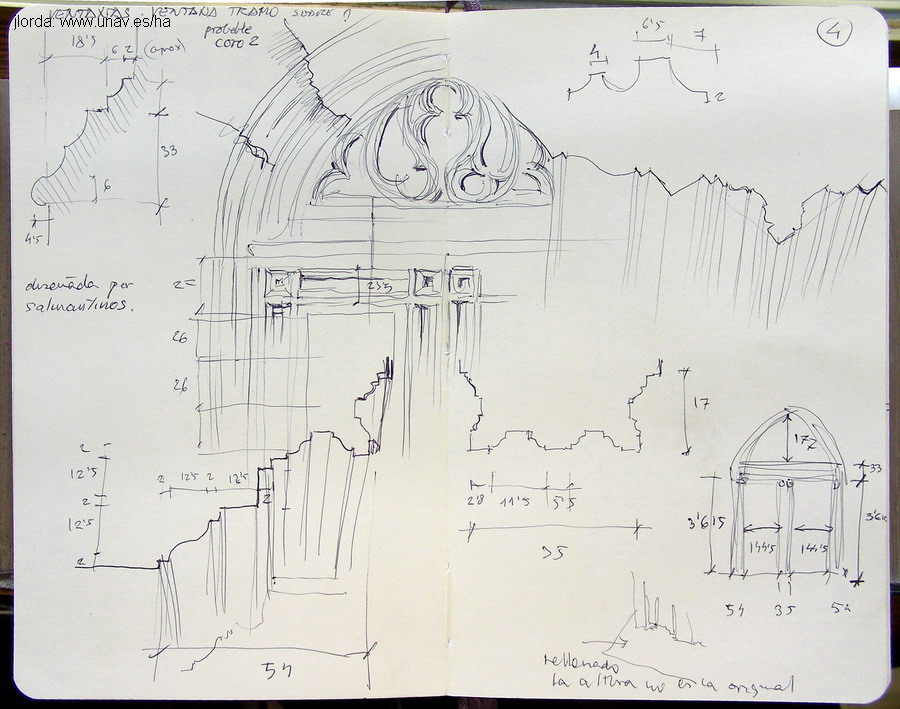 jlorda. www.unav.es/ha
VENTANA TRAMO SOBRE
probable
coro 2
4
18'5
6 2 (aprox)
33
6
4'5
4
6'5
7
2
diseñada por
salmantinos.
23'5
26
26
2
12'5
2
12'5
2
2 12'5 2 12'5
2
54
17
2'8 11'5 5'5
35
172
33
3'615
144'5 144'5
54 35 54
rellenado
la altura no es la original